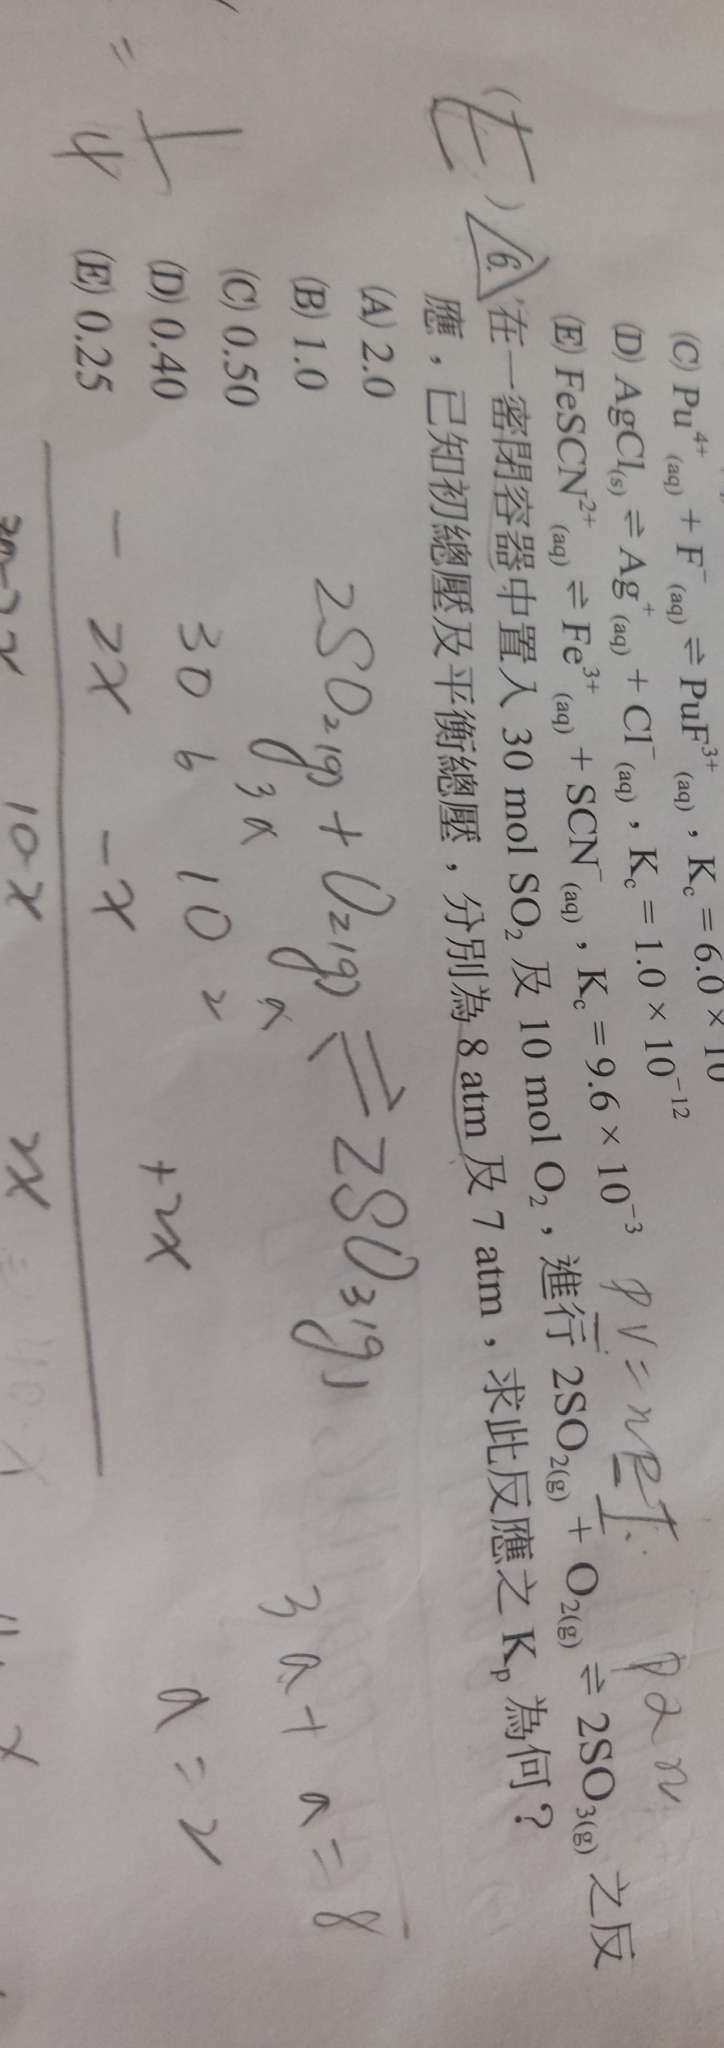 (C) Pu⁴⁺(aq) + F⁻(aq) ⇌ PuF³⁺(aq)，Kc = 6.0 × 10
(D) AgCl(s) ⇌ Ag⁺(aq) + Cl⁻(aq)，Kc = 1.0 × 10⁻¹²
(E) FeSCN²⁺(aq) ⇌ Fe³⁺(aq) + SCN⁻(aq)，Kc = 9.6 × 10⁻³
PV = nRT
P α n
(E) 6. 在一密閉容器中置入 30 mol SO₂ 及 10 mol O₂，進行 2SO₂(g) + O₂(g) ⇌ 2SO₃(g) 之反
應，已知初總壓及平衡總壓，分別為 8 atm 及 7 atm，求此反應之 Kp 為何？
(A) 2.0
(B) 1.0
(C) 0.50
(D) 0.40
(E) 0.25
2SO₂(g) + O₂(g) ⇌ 2SO₃(g)
3a a
3a + a = 8
30 6 10 2
a = 2
- 2x - x + 2x
10-x 2x = 40-x
= 1/4